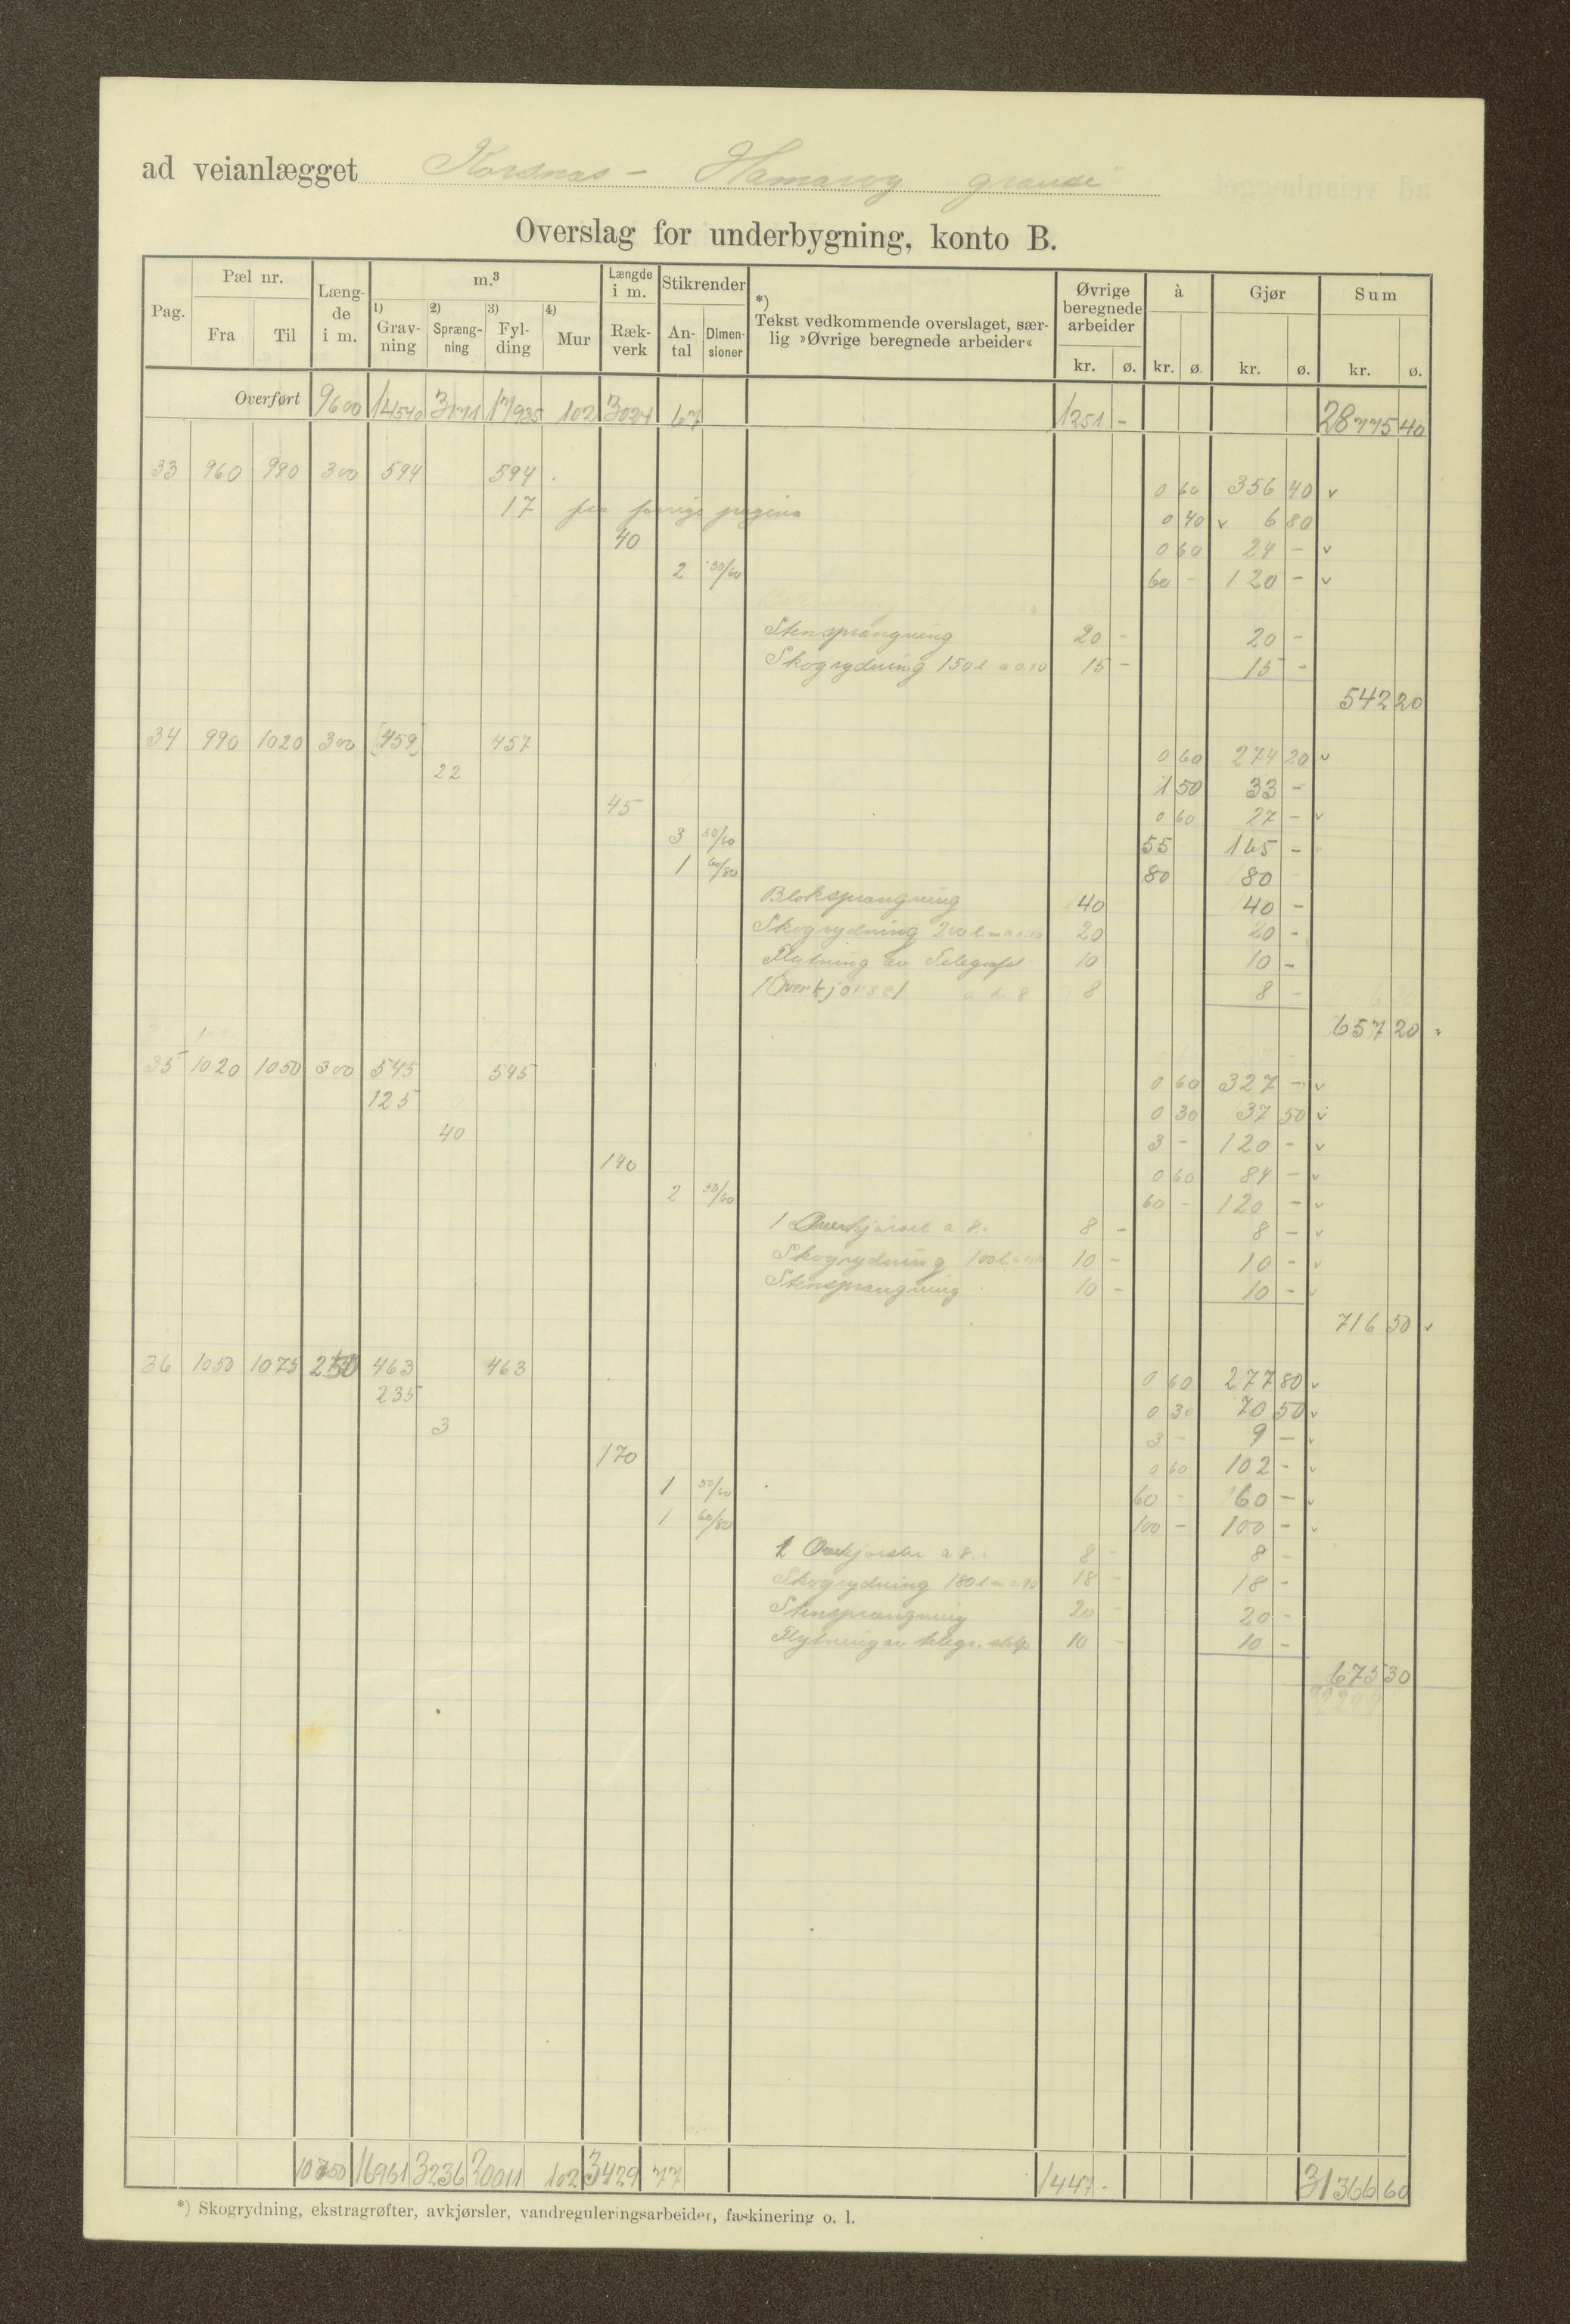 ad veianlægget Korsnas - Hamarøy grænse
Overslag for underbygning, konto B.
Pag. Pæl nr. Fra Til Læng-de i m. m.³ 1) Grav-ning 2) Spræng-ning 3) Fyl-ding 4) Mur Længde i m. Ræk-verk Stikrender An-tal Dimen-sioner *) Tekst vedkommende overslaget, sær-lig »Øvrige beregnede arbeider« Øvrige beregnede arbeider kr. ø. à kr. ø. Gjør kr. ø. Sum kr. ø.
Overført 9600 14540 3171 17935 102 3034 67 1251 - 28775 40
33 960 990 300 594 594 0 60 356 40 v
17 fra forrige pagina 0 40 v 6 80
40 0 60 24 - v
2 50/60 60 - 120 - v
Stensprængning 20 - 20 -
Skogrydning 150 l a 0.10 15 - 15 -
542 20
34 990 1020 300 [459] 457 0 60 274 20 v
22 1 50 33 -
45 0 60 27 - v
3 50/60 55 165 -
1 60/80 80 80
Bloksprængning 40 40 -
Skogrydning 200 l.m a 0.10 20 20 -
Flytning av Telegraf 10 10 -
1 Overkjørsel a kr 8 8 8 -
657 20 v
35 1020 1050 300 545 545 0 60 327 - v
125 0 30 37 50 v
40 3 - 120 - v
140 0 60 84 - v
2 50/60 60 - 120 - v
1 Overkjørsel a 8.- 8 - 8 - v
Skogrydning 100 l. 10 - 10 - v
Stensprængning 10 - 10 - v
716 50 v
36 1050 1075 250 463 463 0 60 277 80 v
235 0 30 70 50 v
3 3 - 9 - v
170 0 60 102 - v
1 50/60 60 - 60 - v
1 60/80 100 - 100 - v
1 Overkjørsler a 8.- 8 - 8 -
Skogrydning 180 l m a 10 18 - 18 -
Stensprængning 20 - 20 -
Flytning av telegr. stolp 10 - 10 -
675 30
10750 16961 3236 20011 102 3429 77 1447 - 31366 60
*) Skogrydning, ekstragrøfter, avkjørsler, vandreguleringsarbeider, faskinering o. l.